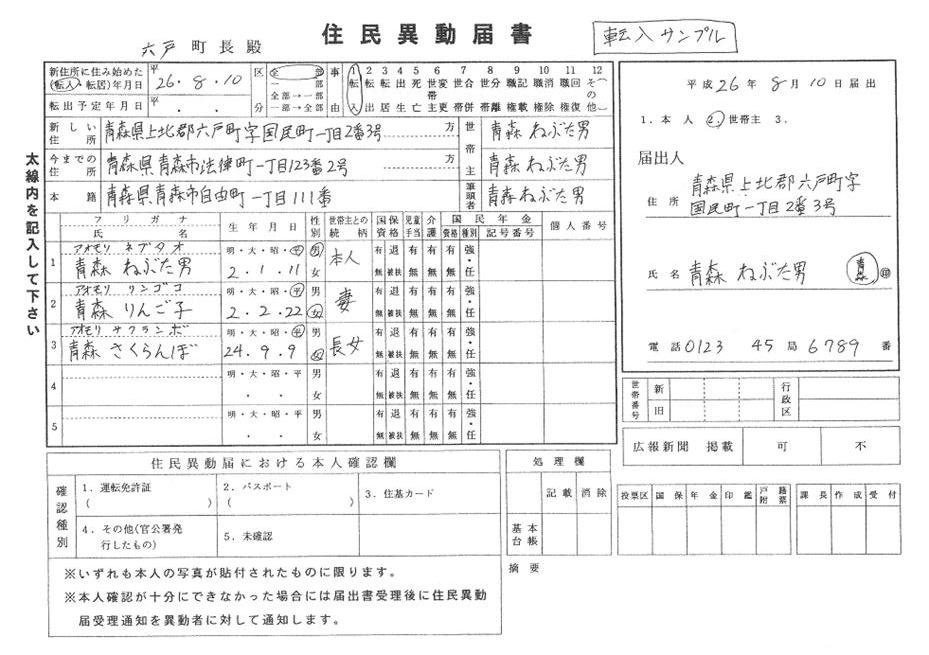 住民異動届書
転入サンプル
六戸町長殿
太線内を記入して下さい
新住所に住み始めた(転入・転居)年月日 平 26・8・10
転出予定年月日 平 ・ ・
区分 全部 全部→一部 一部→全部
事由 1転入 2転出 3転居 4出生 5死亡 6世帯変主更 7世帯合併 8世帯分離 9職権記載 10職権消除 11職権回復 12その他( )
新しい住所 青森県上北郡六戸町字国民町一丁目2番3号 方
世帯主 青森 ねぶた男
今までの住所 青森県青森市法律町一丁目123番2号 方
青森 ねぶた男
本籍 青森県青森市自由町一丁目111番
筆頭者 青森 ねぶた男
フリガナ 氏名 生年月日 性別 世帯主との続柄 国保資格 児童手当 介護 国民年金 資格 種別 記号番号 個人番号
1 アオモリ ネブタオ 明・大・昭・平 男 有 退 有 有 有 強・
青森 ねぶた男 2・1・11 女 本人 無 被扶 無 無 無 任
2 アオモリ リンゴコ 明・大・昭・平 男 有 退 有 有 有 強・
青森 りんご子 2・2・22 女 妻 無 被扶 無 無 無 任
3 アオモリ サクランボ 明・大・昭・平 男 有 退 有 有 有 強・
青森 さくらんぼ 24・9・9 女 長女 無 被扶 無 無 無 任
4 明・大・昭・平 男 有 退 有 有 有 強・
・ ・ 女 無 被扶 無 無 無 任
5 明・大・昭・平 男 有 退 有 有 有 強・
・ ・ 女 無 被扶 無 無 無 任
平成26年8月10日届出
1.本人 2.世帯主 3.
届出人
住所 青森県上北郡六戸町字
国民町一丁目2番3号
氏名 青森 ねぶた男 青森 印
電話 0123 45局 6789番
世帯番号 新 旧
行政区
広報新聞 掲載 可 不
住民異動届における本人確認欄
確認種別
1.運転免許証( )
2.パスポート( )
3.住基カード
4.その他(官公署発行したもの)
5.未確認
※いずれも本人の写真が貼付されたものに限ります。
※本人確認が十分にできなかった場合には届出書受理後に住民異動
届受理通知を異動者に対して通知します。
処理欄
記載 消除
基本台帳
摘要
投票区 国保 年金 印鑑 戸籍附票
課長 作成 受付